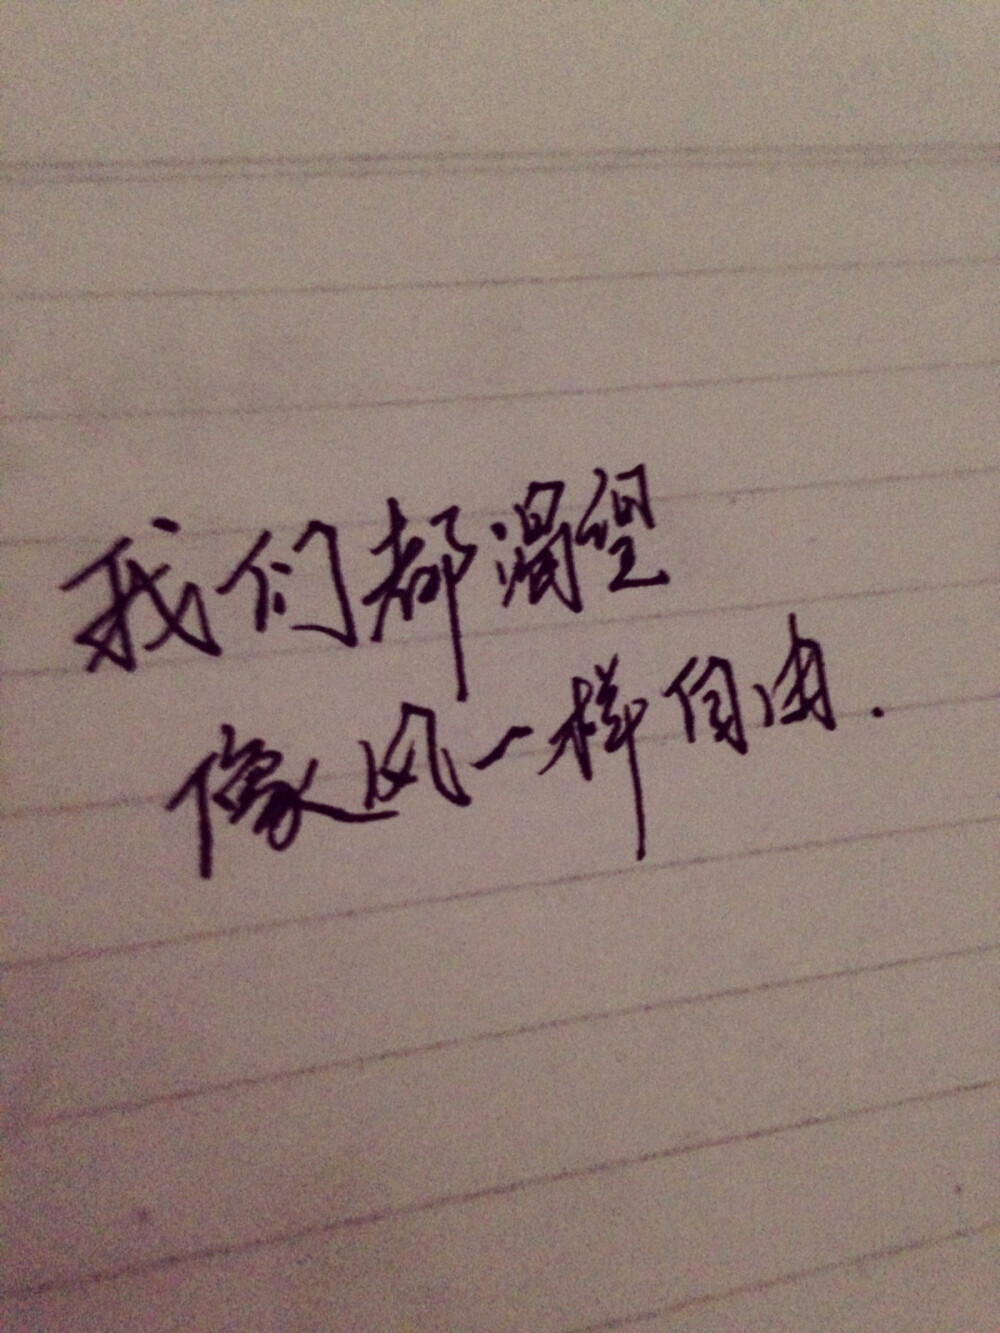 我们都渴望
像风一样自由.